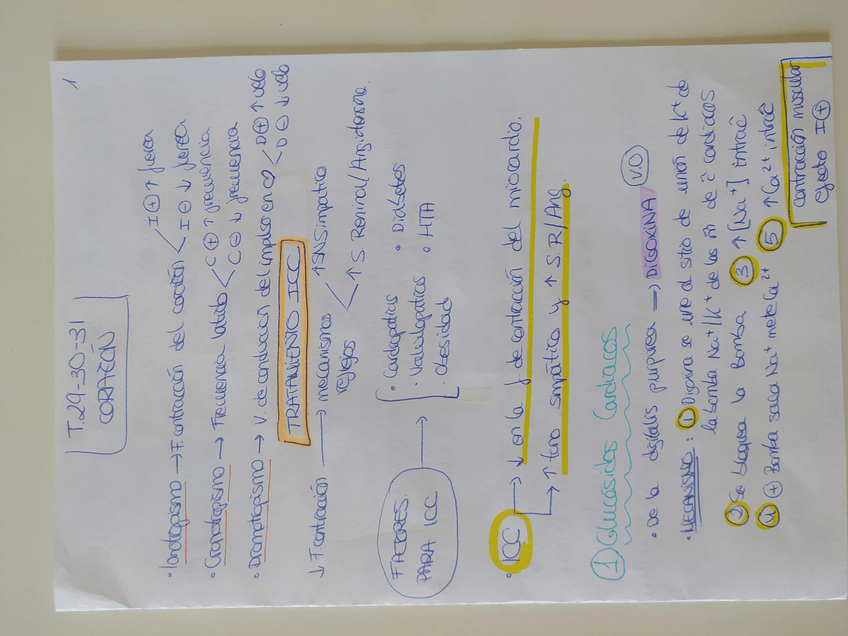 1
T.29-30-31
CORAZÓN
• Ionotropismo → F. contracción del corazón < I ⊕ ↑ fuerza
I ⊖ ↓ fuerza
• Cronotropismo → Frecuencia latido < C ⊕ ↑ frecuencia
C ⊖ ↓ frecuencia
• Dromotropismo → V. de conducción del impulso en < D ⊕ ↑ velo
< D ⊖ ↓ velo
TRATAMIENTO ICC
↓ F contracción → mecanismos reflejos < ↑ SN Simpático
↑ S. Renina/Angiotensina.
FACTORES PARA ICC → • Cardiopatías • Diabetes
• Valvulopatías • HTA
• Obesidad
• ICC → ↓ en la f de contracción del miocardio.
→ ↑ tono simpático y ↑ S.R/Ang.
① Glucósidos Cardíacos
• De la digitalis purpurea → DIGOXINA (V.O)
• MECANISMO: ① Digoxina se une al sitio de unión de K⁺ de
la bomba Na⁺/K⁺ de las m de c cardíacas
② Se bloquea la Bomba ③ ↑ [Na⁺] intrac
④ ⊕ Bomba saca Na⁺ mete Ca²⁺ ⑤ ↑ Ca²⁺ intrac
contracción muscular
efecto I ⊕